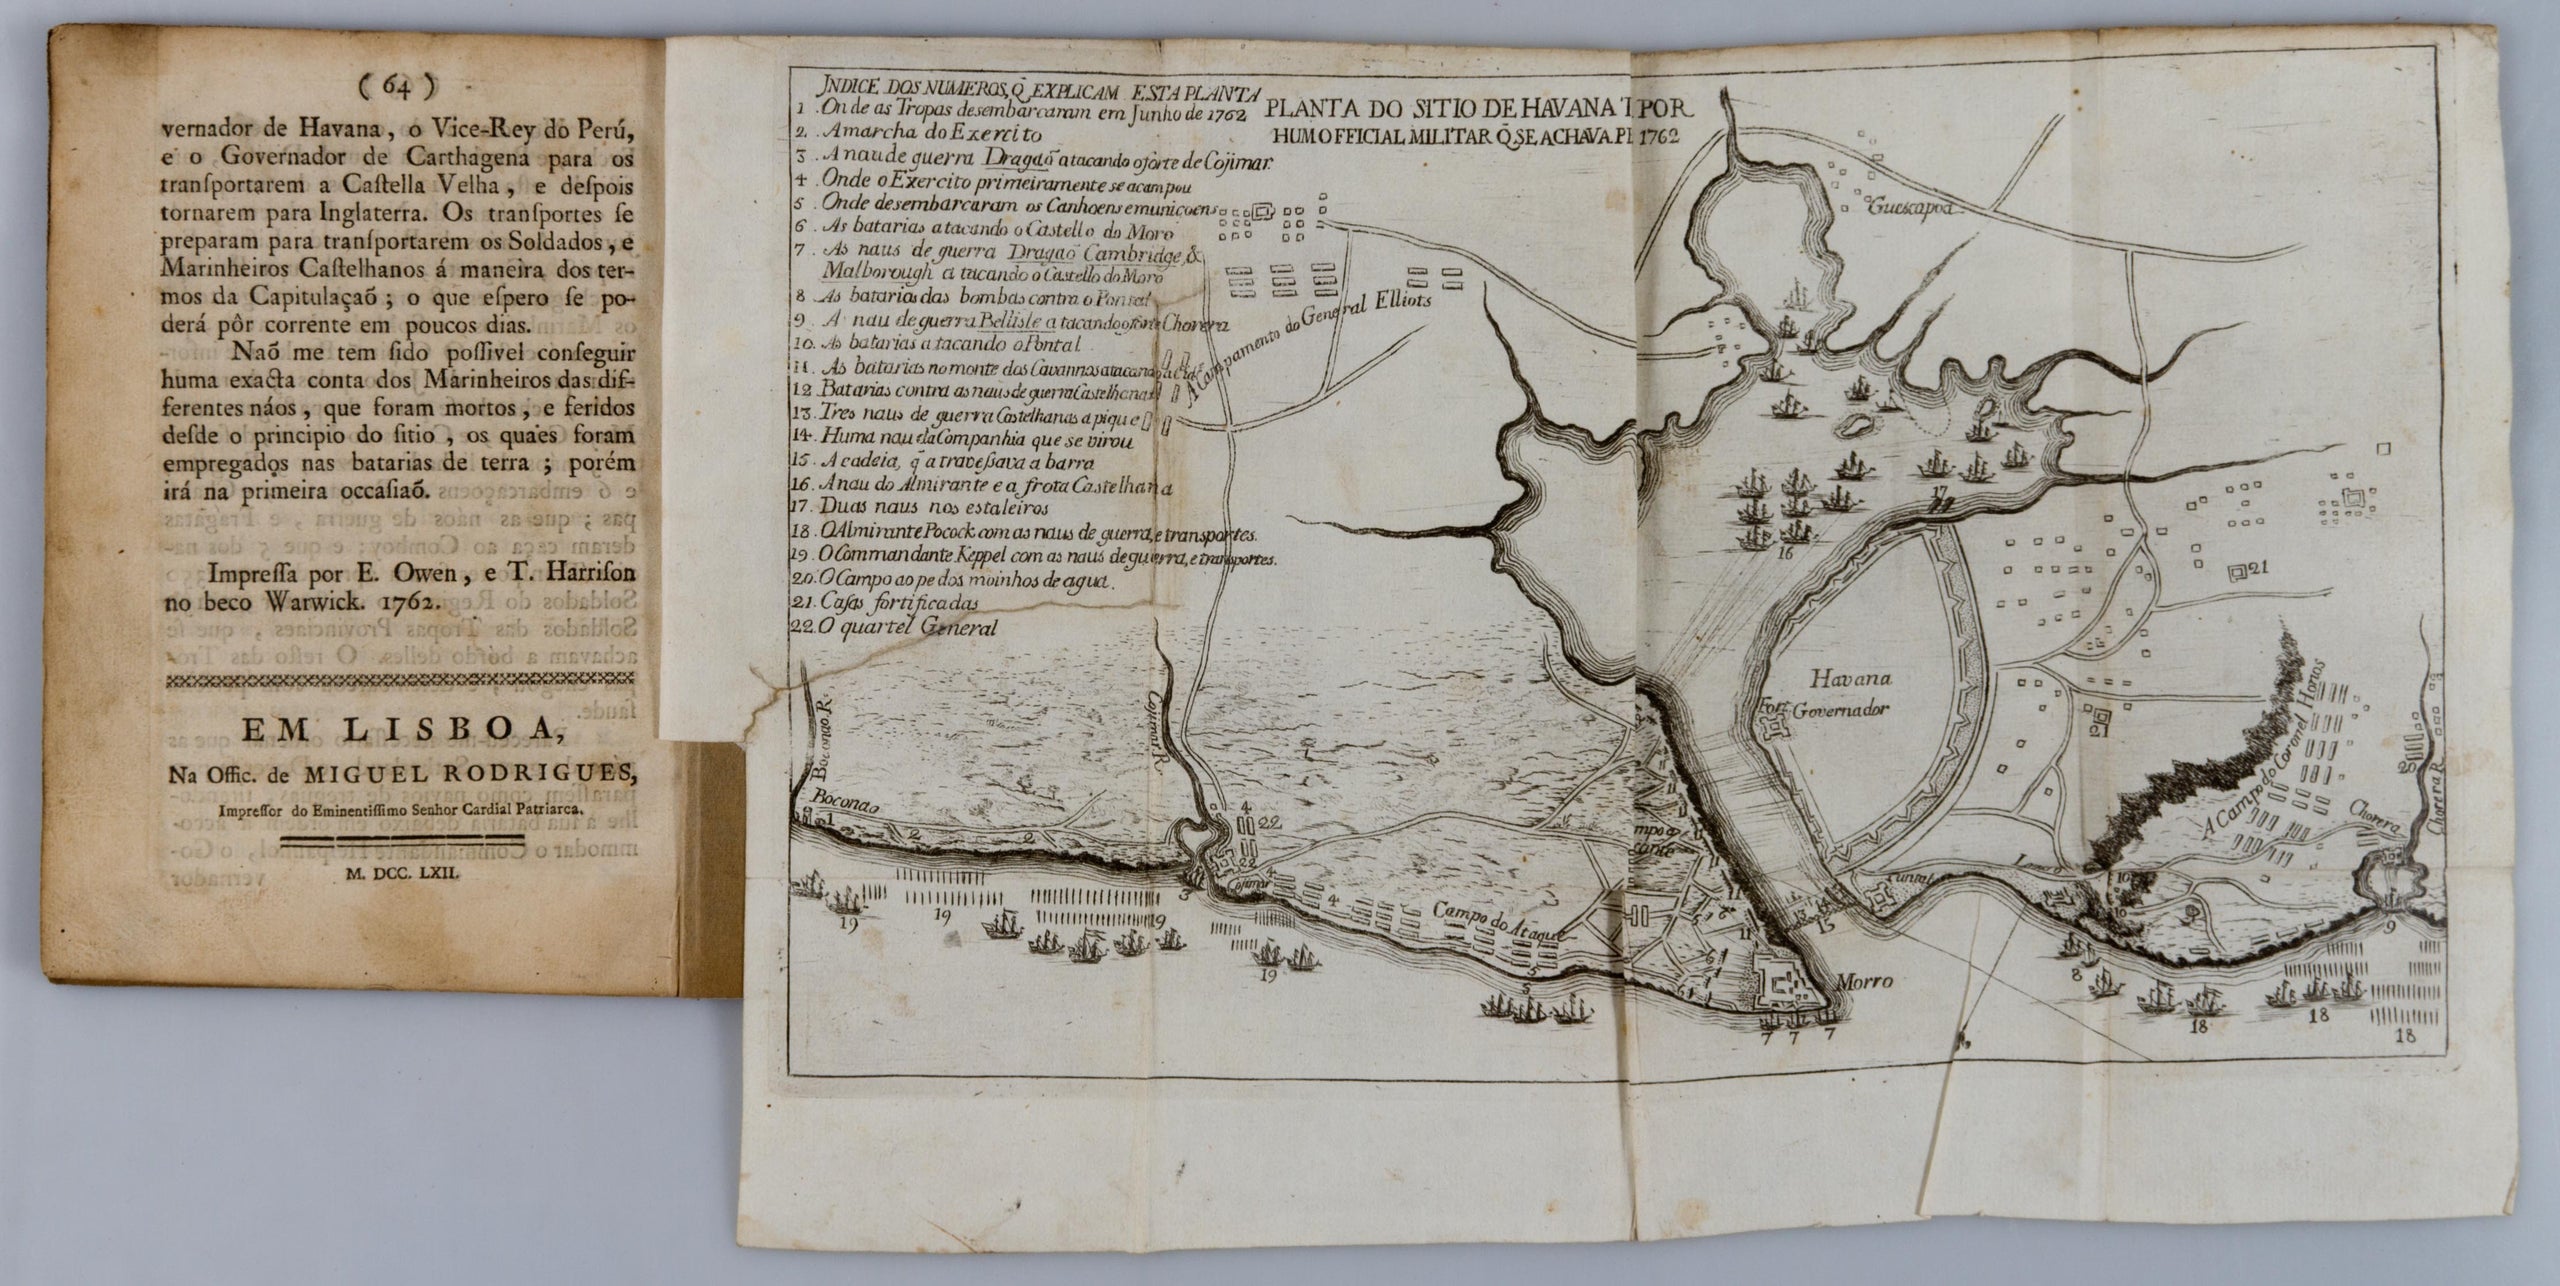 ( 64 )
vernador de Havana, o Vice-Rey do Perú,
e o Governador de Carthagena para os
tranſportarem a Caſtella Velha, e deſpois
tornarem para Inglaterra. Os tranſportes ſe
preparam para tranſportarem os Soldados, e
Marinheiros Caſtelhanos á maneira dos ter-
mos da Capitulaçaõ; o que eſpero ſe po-
derá pôr corrente em poucos dias.
Naõ me tem ſido poſſivel conſeguir
huma exacta conta dos Marinheiros das dif-
ferentes náos, que foram mortos, e feridos
deſde o principio do ſitio, os quaes foram
empregados nas batarias de terra; porém
irá na primeira occaſiaõ.
Impreſſa por E. Owen, e T. Harriſon
no beco Warwick. 1762.
EM LISBOA,
Na Offic. de MIGUEL RODRIGUES,
Impreſſor do Eminentiſſimo Senhor Cardial Patriarca.
M. DCC. LXII.
JNDICE DOS NUMEROS, Q̃ EXPLICAM ESTA PLANTA
1 . Onde as Tropas desembarcaram em Junho de 1762
2 . A marcha do Exercito
3 . A nau de guerra Dragaõ atacando o forte de Cojimar.
4 . Onde o Exercito primeiramente se acampou
5 . Onde desembarcaram os Canhoens e municoens
6 . As batarias atacando o Castello do Moro
7 . As naus de guerra Dragaõ Cambridge, &
Malborough atacando o Castello do Moro
8 . As batarias das bombas contra o Pontal
9 . A nau de guerra Bellisle atacando o forte Chorera
10. As batarias atacando o Pontal
11. As batarias no monte dos Cavannos atacando
12 Batarias contra as naus de guerra Castelhanas
13. Tres naus de guerra Castelhanas a pique
14. Huma nau da Companhia que se virou
15. A cadeia, q̃ atraveſsava a barra
16. A nau do Almirante e a frota Castelhana
17. Duas naus nos estaleiros
18. O Almirante Pocock com as naus de guerra, e transportes.
19. O Commandante Keppel com as naus de guerra, e transportes.
20. O Campo ao pe dos moinhos de agua.
21. Caſas fortificadas
22. O quartel General
PLANTA DO SITIO DE HAVANA T POR
HUM OFFICIAL MILITAR Q̃ SE ACHAVA PR 1762
Guescapoa
Acampamento do General Elliots
17
16
21
Havana
Fort
Governador
21
A Campo do Coronel Howes
20
Boconao R.
Cojimar R.
Boconao
1
2
2
4
22
22
3
Cojimar
4
4
Campo do Ataque
5
5
11
11
6
6
13
14
15
Puntal
L
10
10
Chorera
Chorera R.
9
Morro
7 7 7
8
19
19
19
19
18
18
18